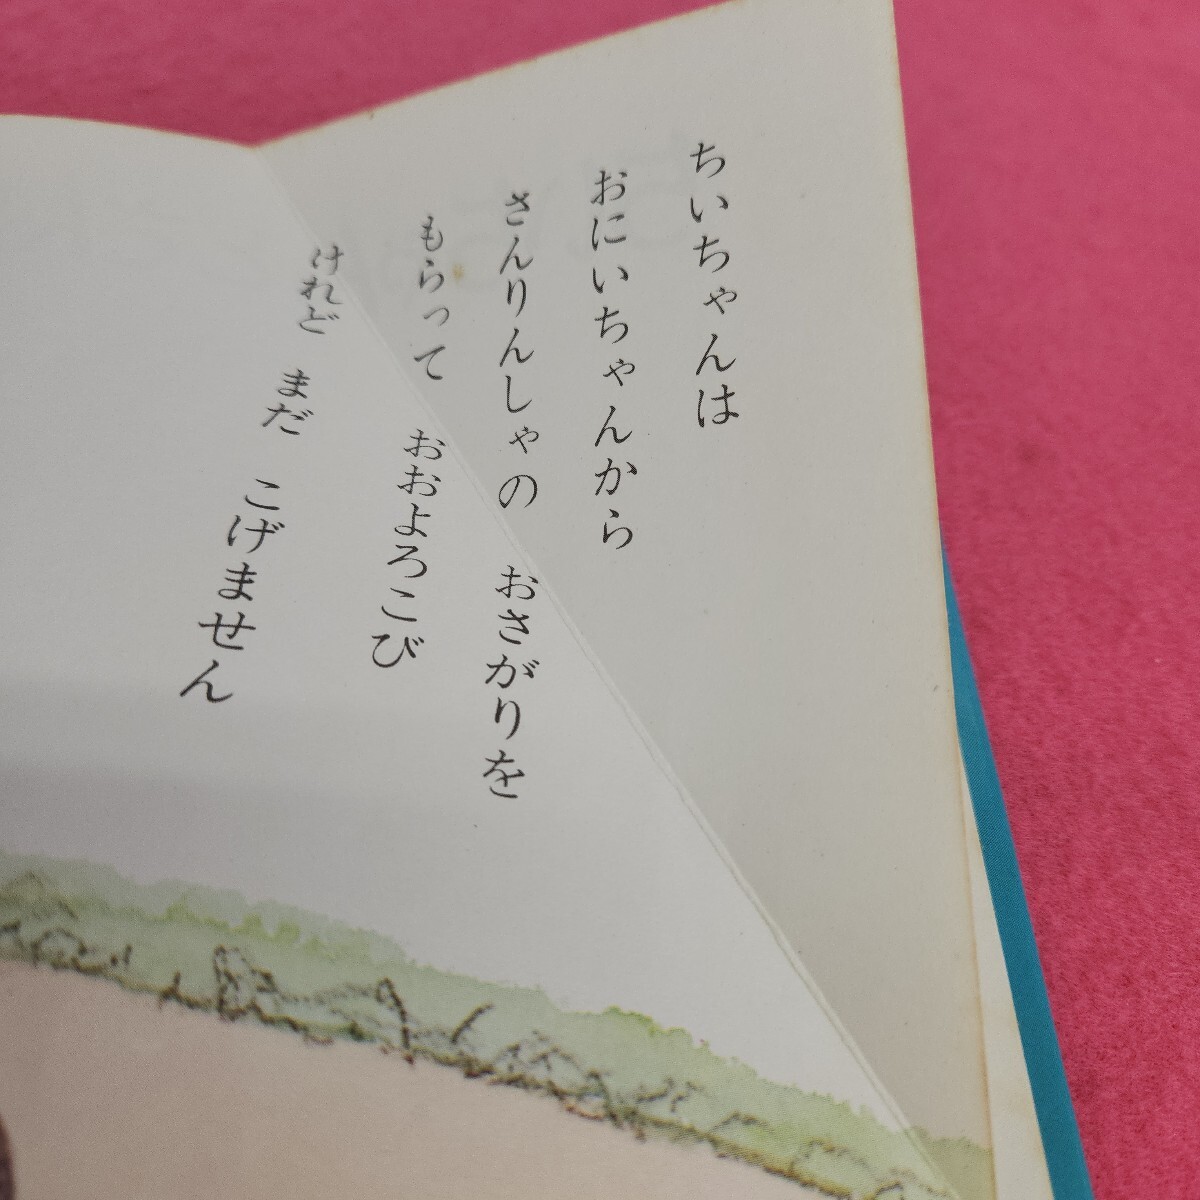 ちいちゃんは
おにいちゃんから
さんりんしゃの　おさがりを
もらって　おおよろこび
けれど　まだ　こげません